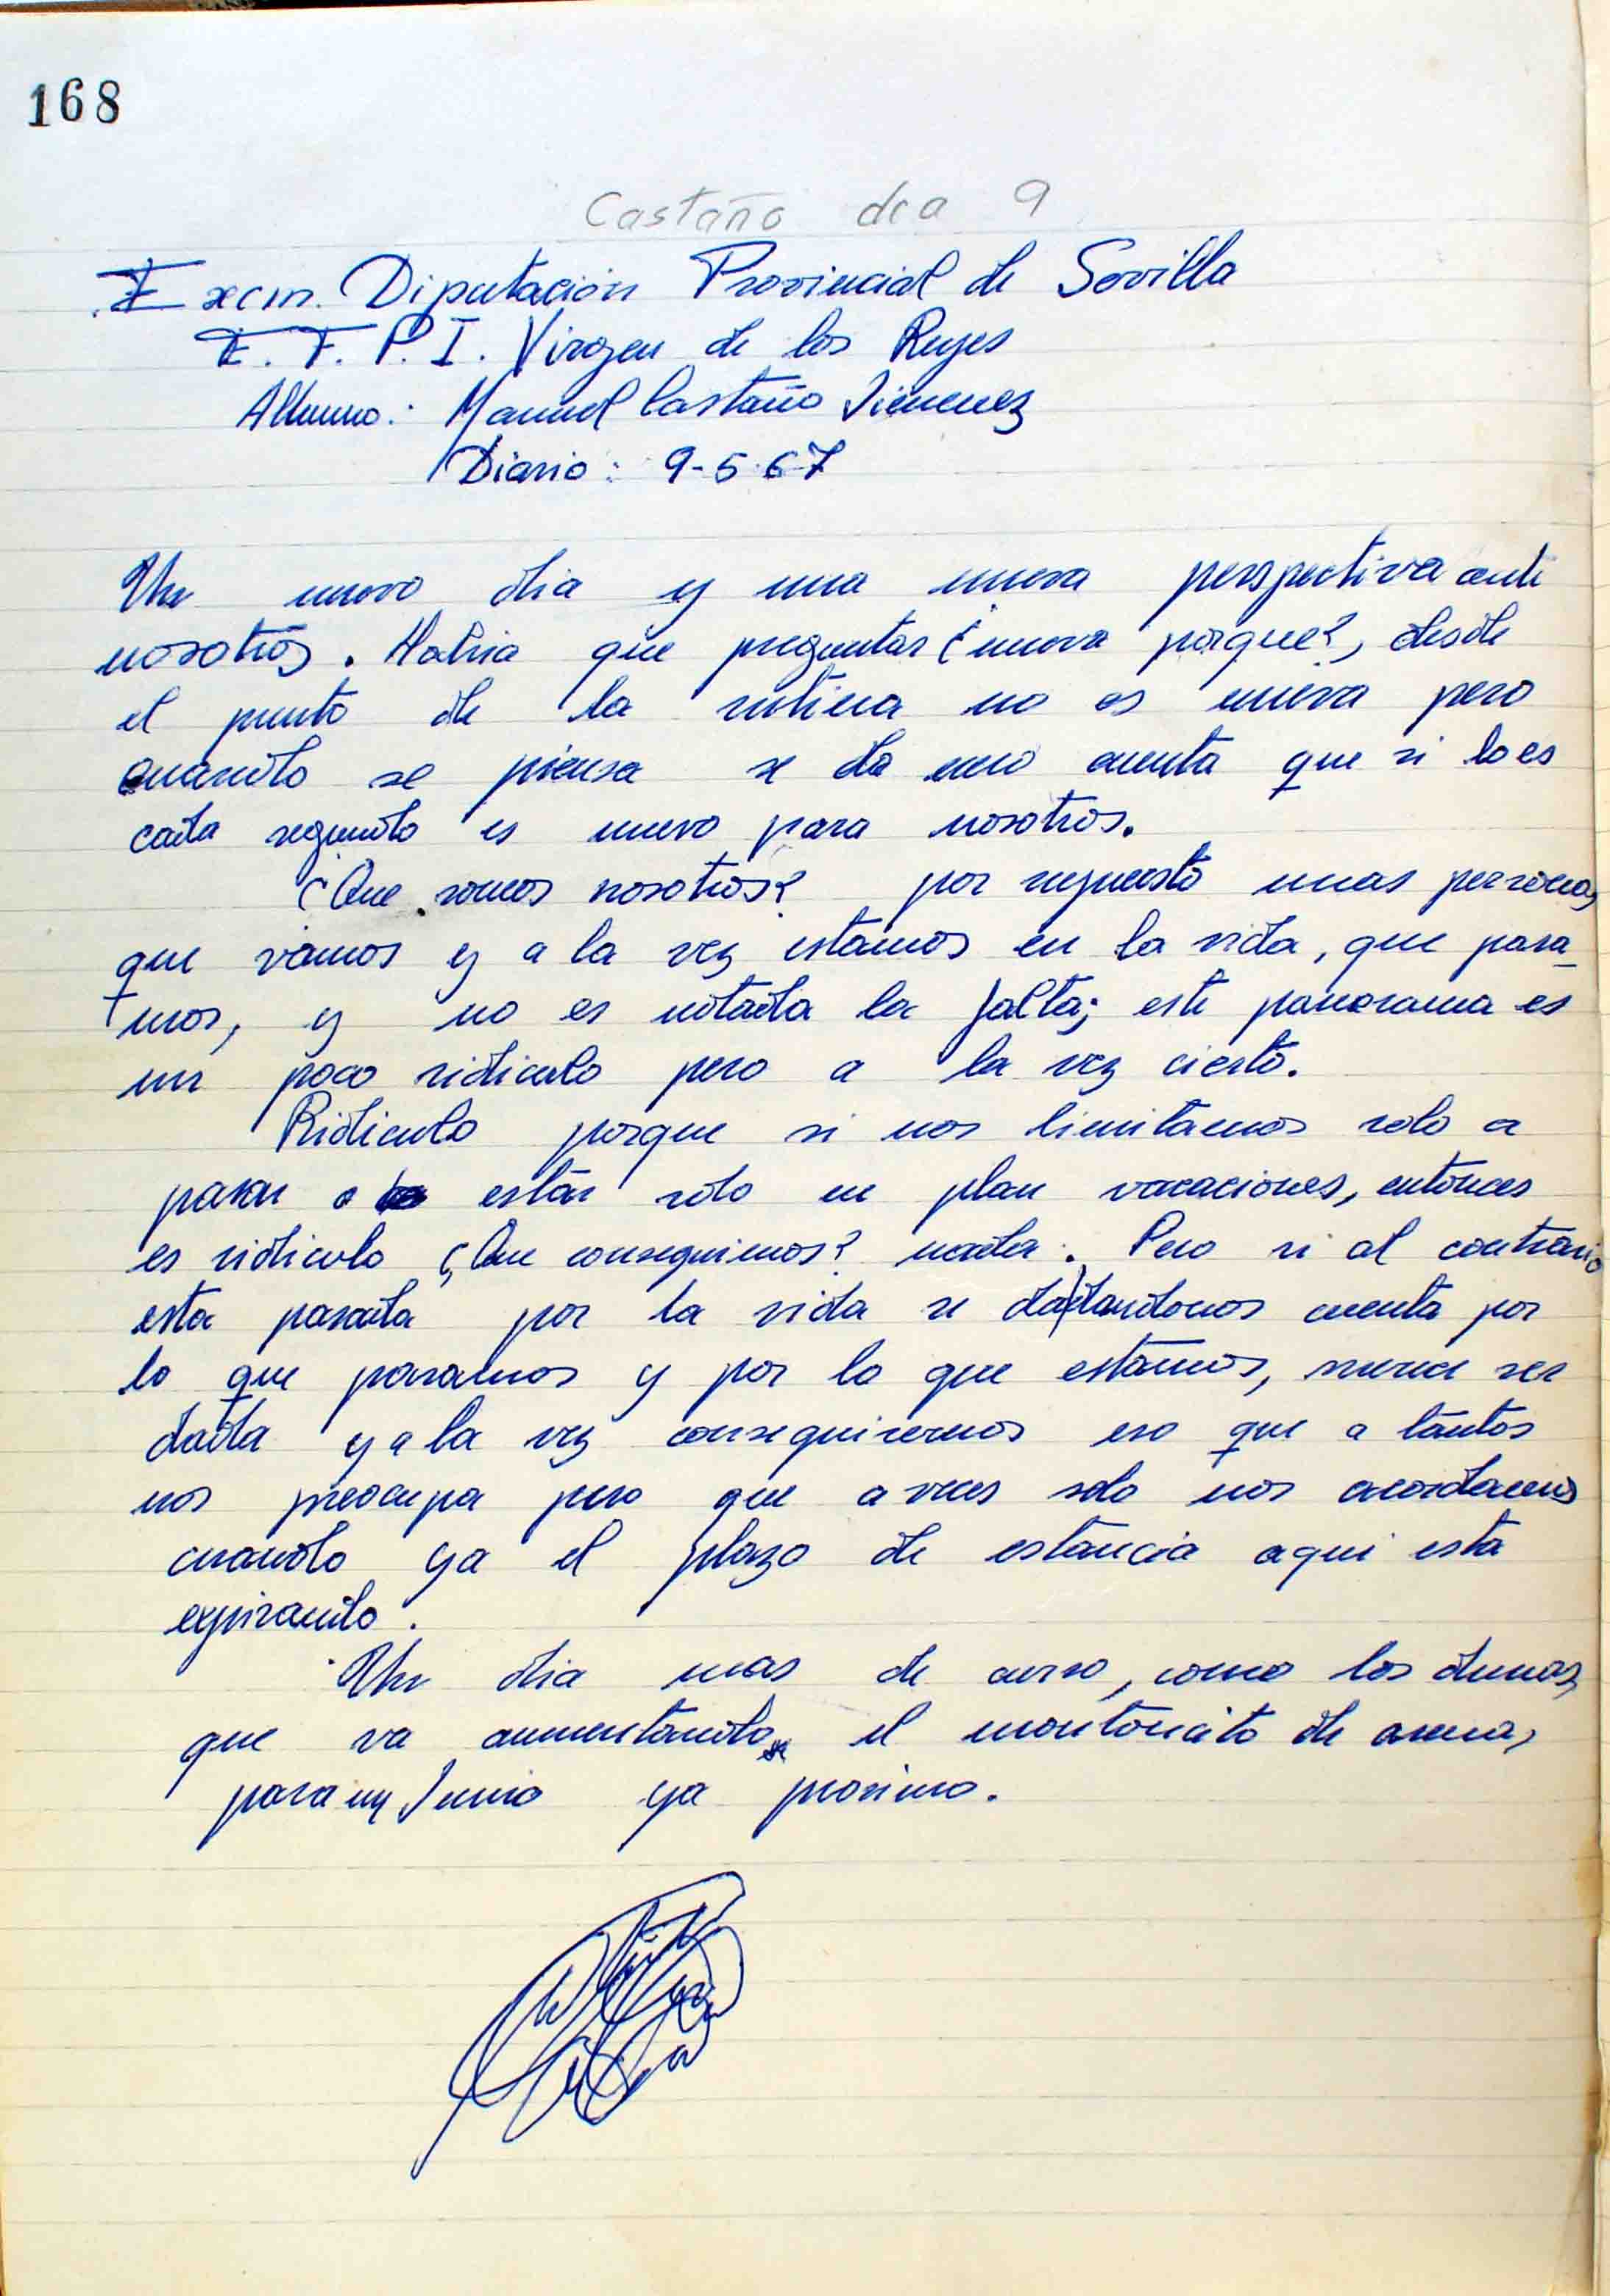 168
Castaño dia 9
Excm. Diputación Provincial de Sevilla
E. F. P. I. Virgen de los Reyes
Alumno: Manuel Castaño Jimenez
Diario: 9-5-67
Un nuevo dia y una nueva perspectiva ante
nosotros. Habria que preguntar ¿nueva porque?, desde
el punto de la rutina no es nueva pero
cuando se piensa se da uno cuenta que si lo es
cada segundo es nuevo para nosotros.
¿Que somos nosotros? por supuesto unas personas
que vamos y a la vez estamos en la vida, que pasa-
mos, y no es notada la falta; este panorama es
un poco ridiculo pero a la vez cierto.
Ridiculo porque si nos limitamos solo a
pasar o estar solo en plan vacaciones, entonces
es ridiculo ¿Que conseguimos? nada. Pero si al contrario
esta pasada por la vida se da dandonos cuenta por
lo que pasamos y por lo que estamos, nunca ser
dada y a la vez conseguiremos eso que a tantos
nos preocupa pero que a veces solo nos acordamos
cuando ya el plazo de estancia aqui esta
expirando.
Un dia mas de curso, como los demas,
que va aumentando el montoncito de arena,
para un Junio ya proximo.